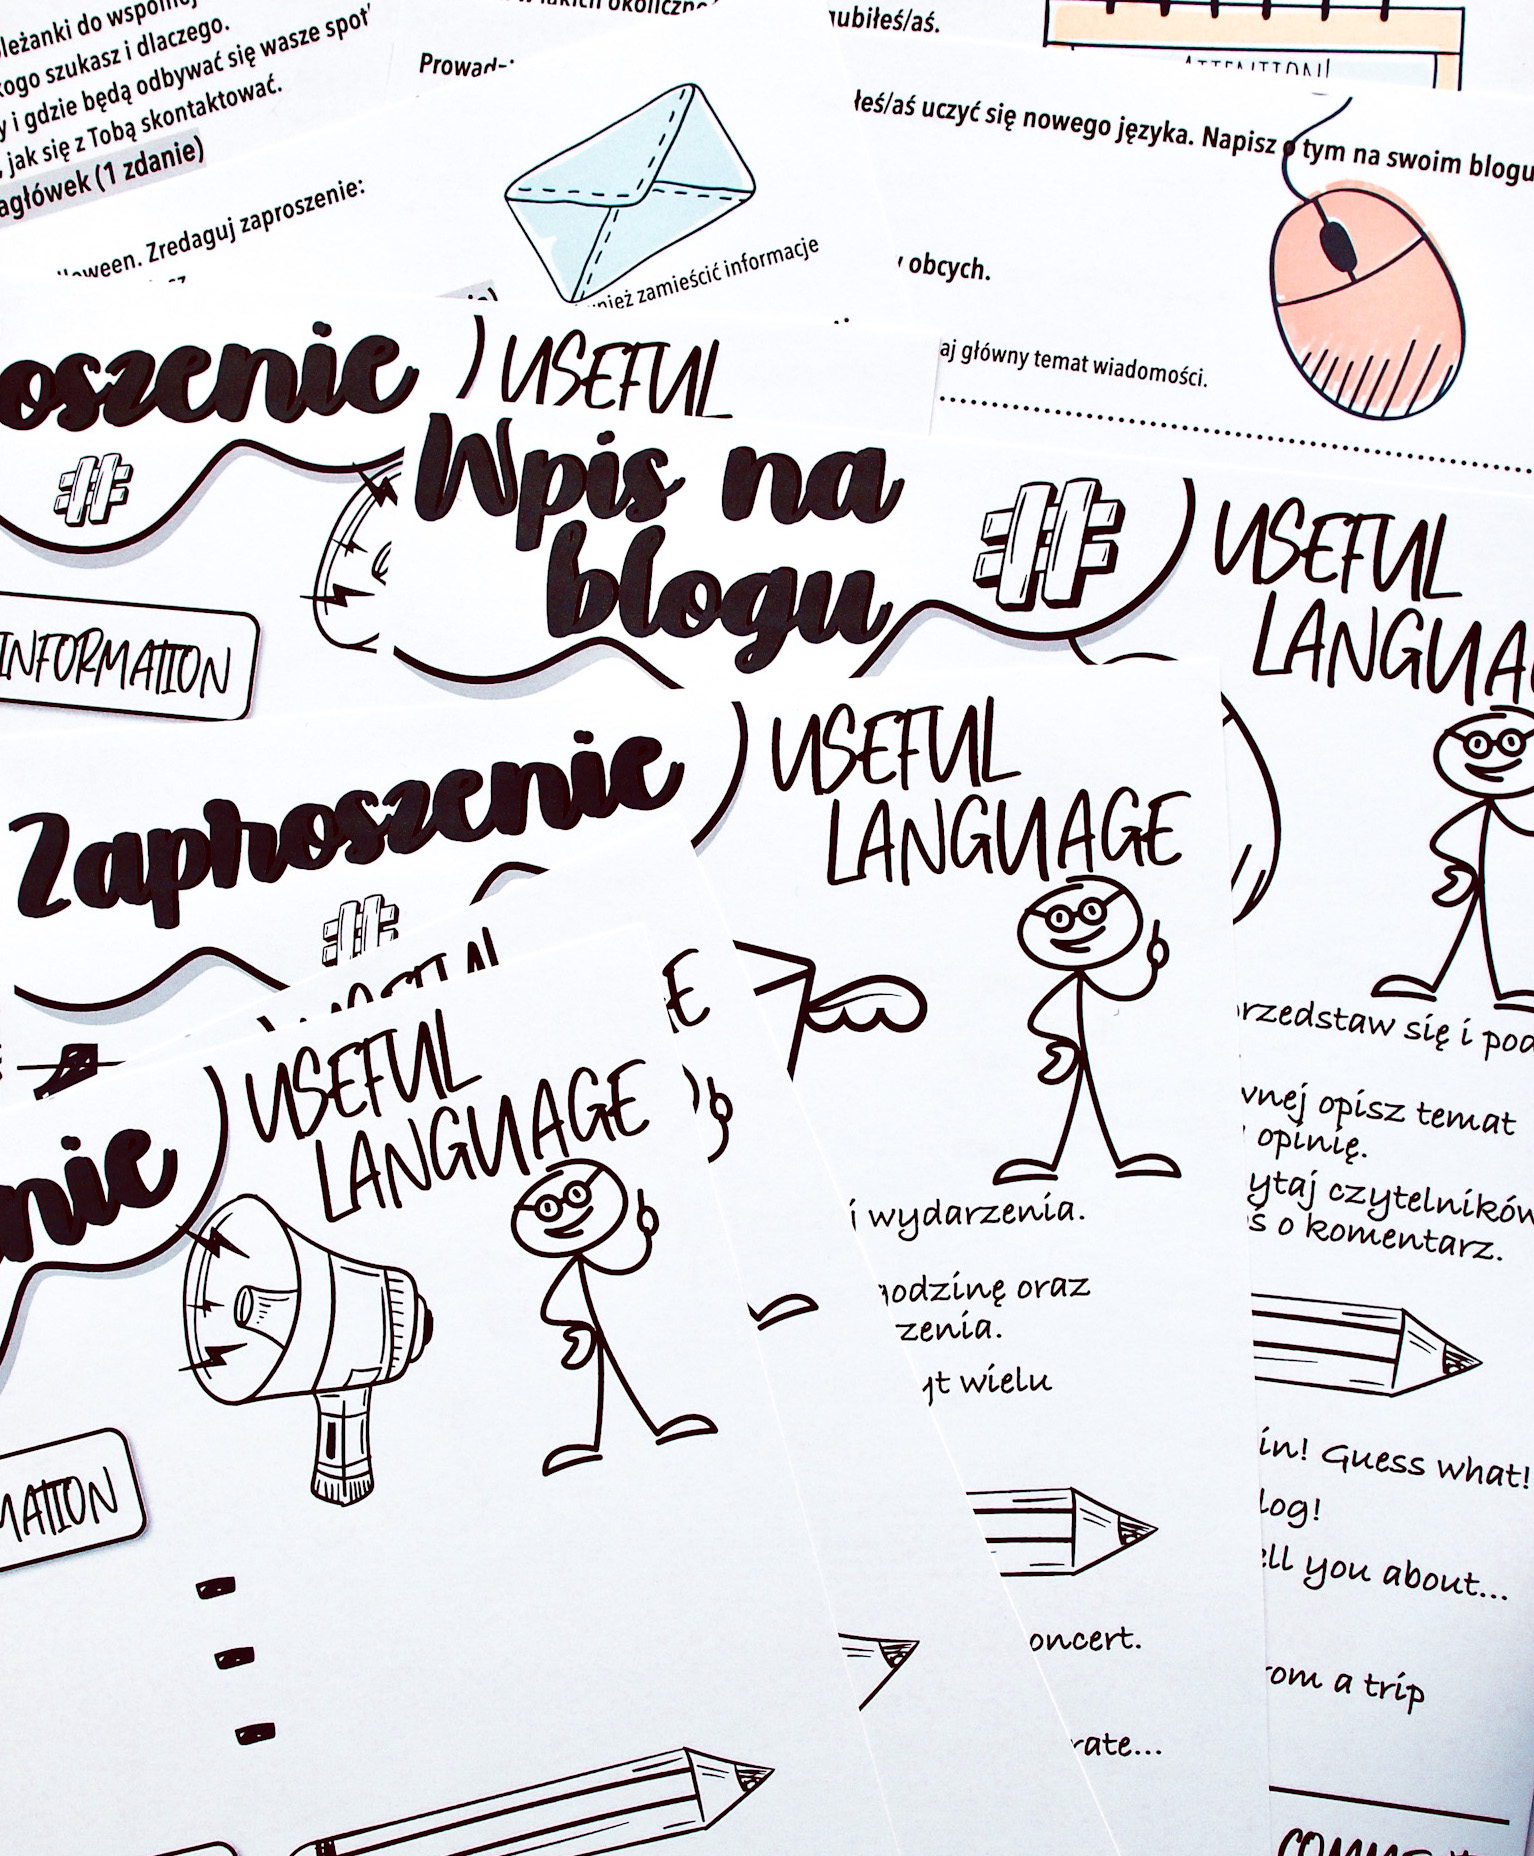 do wspólnej
kogo szukasz i dlaczego.
y i gdzie będą odbywać się wasze
, jak się z Tobą skontaktować.
agłówek (1 zdanie)
lloween. Zredaguj zaproszenie:
okoliczn
Prowad
nież zamieścić informacje
ubiłeś/aś.
ATTENTION!
łeś/aś uczyć się nowego języka. Napisz o tym na swoim blogu
obcych.
aj główny temat wiadomości.
oszenie
USEFUL
INFORMATION
Wpis na
blogu
USEFUL
LANGUA
rzedstaw się i pod
wnej opisz temat
opinię.
ytaj czytelników
ś o komentarz.
in! Guess what!
log!
ell you about...
rom a trip
COMME
Zaproszenie
USEFUL
LANGUAGE
i wydarzenia.
godzinę oraz
zenia.
yt wielu
oncert.
rate...
GE
nie
USEFUL
LANGUAGE
MATION